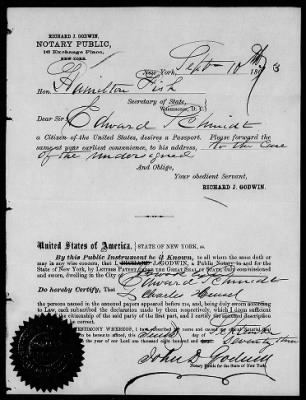 RICHARD J. GODWIN,
NOTARY PUBLIC,
16 Exchange Place,
NEW YORK.
New York, Sept 10th 1873
Hon. Hamilton Fish
Secretary of State,
Washington, D. C.
Dear Sir: Edward Schmidt
a Citizen of the United States, desires a Passport. Please forward the
same at your earliest convenience, to his address, to the Care
of the undersigned
And Oblige,
Your obedient Servant,
RICHARD J. GODWIN.
United States of America, STATE OF NEW YORK, ss.
By this Public Instrument be it Known, to all whom the same doth or
may in any wise concern, that I, GODWIN, a Public Notary in and for the
State of New York, by LETTERS PATENT UNDER THE GREAT SEAL OF STATE, duly commissioned
and sworn, dwelling in the City of
Do hereby Certify, That Edward Schmidt
Charles
the persons named in the annexed papers appeared before me, and being duly sworn according
to Law, each subscribed the declaration made by them respectively, which I deem sufficient
of the citizenship of the said party of the first part, and I certify the annexed description
TESTIMONY WHEREOF, I have subscribed my name and caused my
to be hereto affixed, this day of
the year of our Lord one thousand eight hundred and Seventy three
John Godwin
Notary Public for the State of New York.